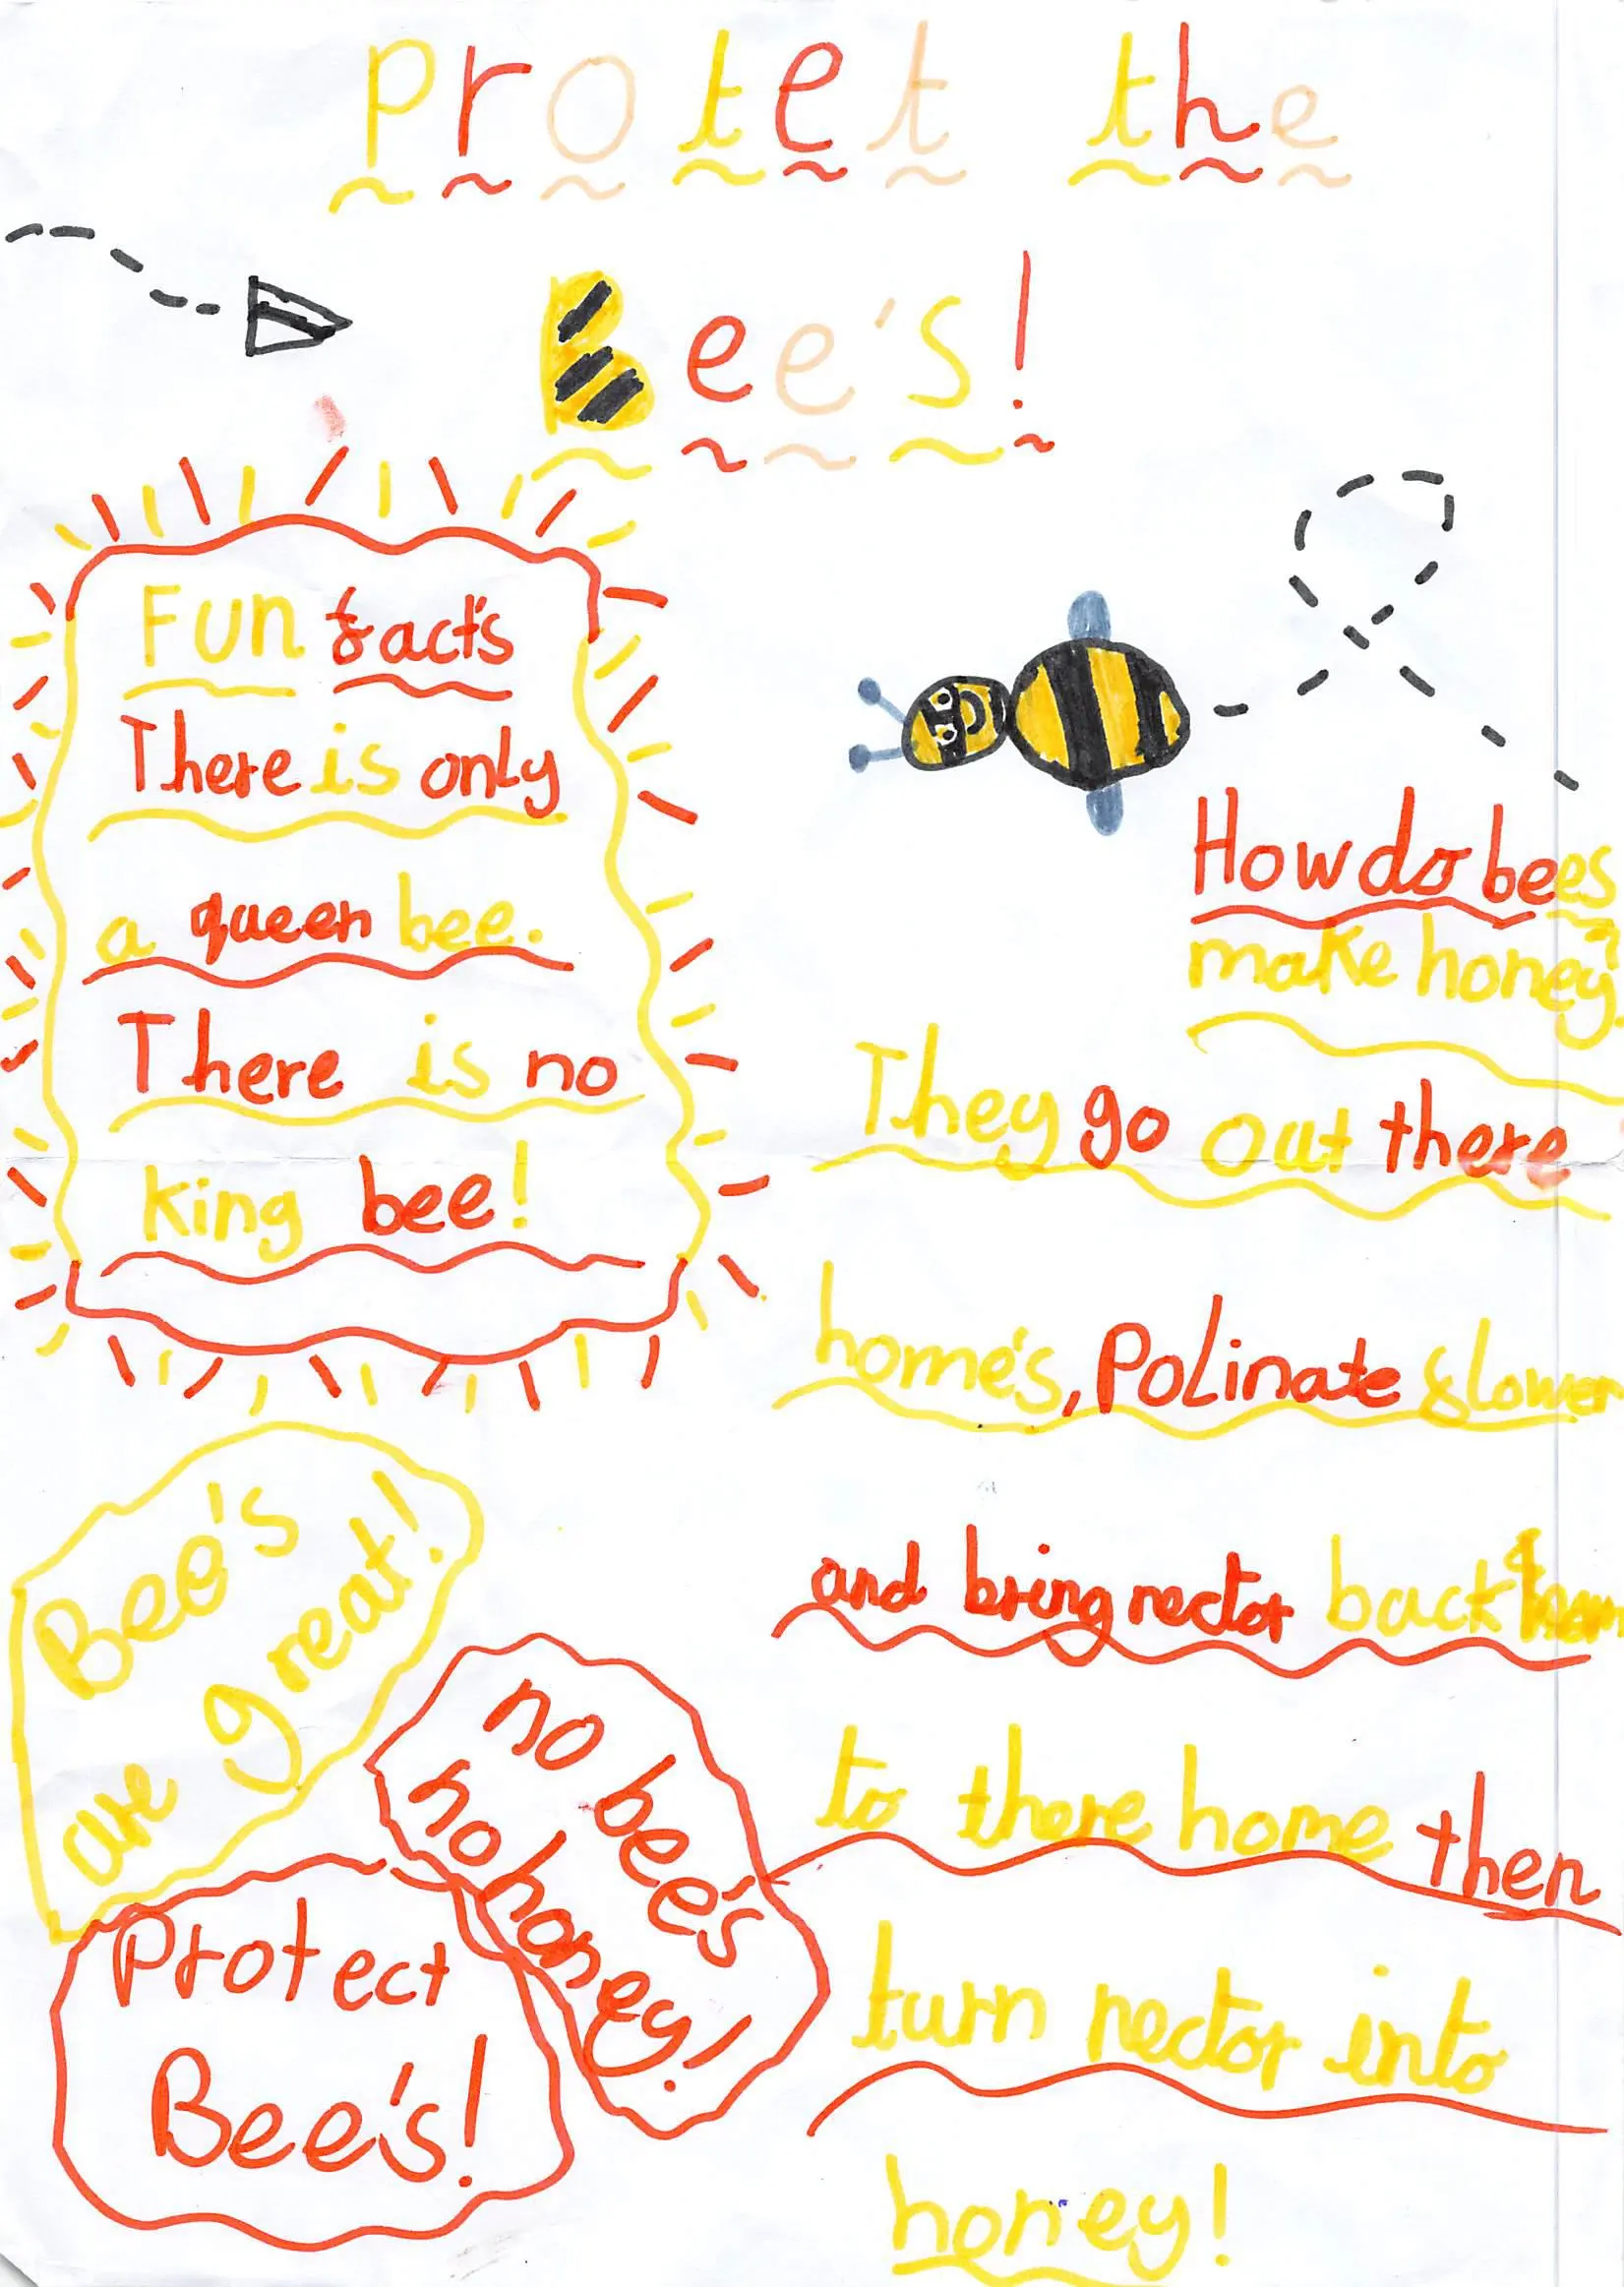 Protet the
Bee's!
Fun facts
There is only
a queen bee.
There is no
king bee!
How do bees
make honey?
They go out there
home's, Polinate flower
and bring nector back
to there home then
turn nector into
honey!
Bee's
are great!
no bee's
no honey!
Protect
Bee's!